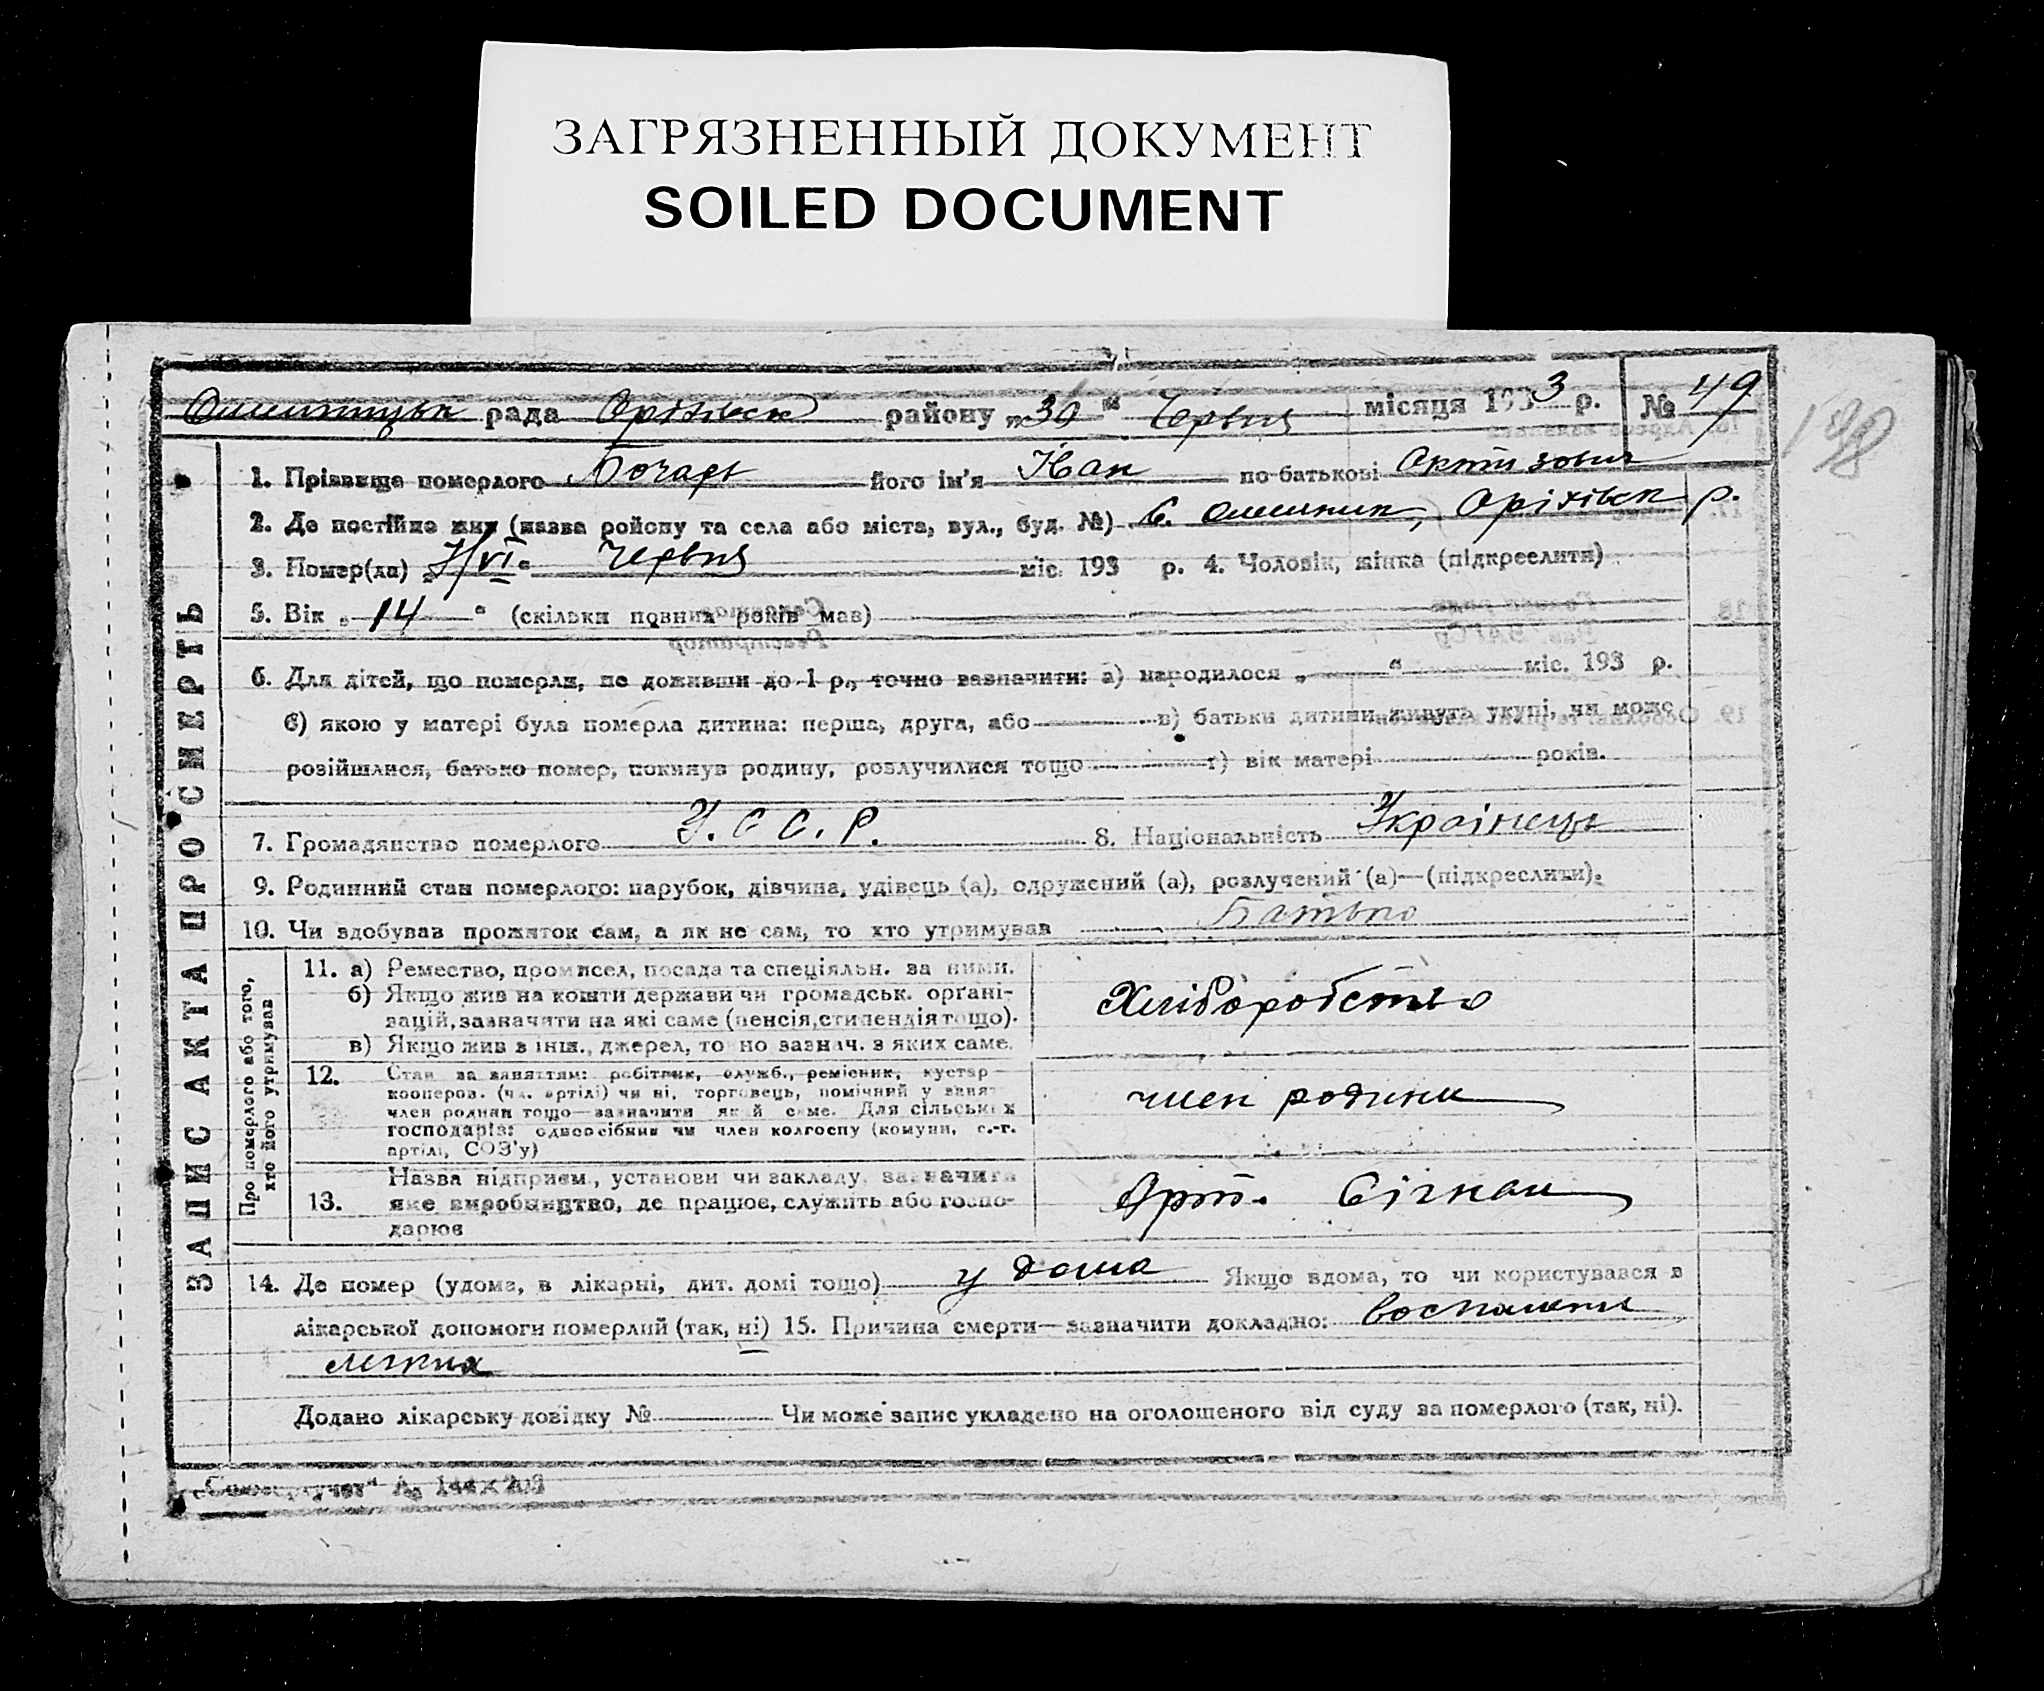 ЗАГРЯЗНЕННЫЙ ДОКУМЕНТ
SOILED DOCUMENT
рада Оріхівськ району „30" Червня місяця 1933 р. № 49
198
ЗАПИС АКТА ПРО СМЕРТЬ
1. Прізвище померлого Бочарь його ім'я Іван по батькові
2. Де постійно жив (назва району та села або міста, вул., буд. №) С. Оріхівськ р.
3. Помер(ла) „ /VI" Червня міс. 193 р. 4. Чоловік, жінка (підкреслити)
5. Вік „ 14 " (скільки повних років мав)
6. Для дітей, що померли, не доживши до 1 р., точно зазначити: а) народилося „ " міс. 193 р.
б) якою у матері була померла дитина: перша, друга, або в) батьки дитини живуть укупі, чи може
розійшлися, батько помер, покинув родину, розлучилися тощо г) вік матері років.
7. Громадянство померлого У.С.С.Р. 8. Національність Українець
9. Родинний стан померлого: парубок, дівчина, удівець (а), одружений (а), розлучений (а)—(підкреслити).
10. Чи здобував прожиток сам, а як не сам, то хто утримував Батько
Про померлого або того, хто його утримував
11. а) Ремество, промисел, посада та спеціяльн. за ними.
б) Якщо жив на кошти держави чи громадськ. органі-
зацій, зазначити на які саме (пенсія, стипендія тощо).
в) Якщо жив з інш., джерел, то но зазнач. з яких саме.
Хліборобство
12. Стан за заняттям: робітник, служб., ремісник, кустар
кооперов. (чл. артілі) чи ні, торговець, помічний у занят
член родини тощо—зазначити який саме. Для сільських
господарів: одноосібник чи член колгоспу (комуни, с.-г.
артілі, СОЗ'у)
член родини
13. Назва підприєм., установи чи закладу, зазначити
яке виробництво, де працює, служить або госпо-
дарює
Арт. Січкан
14. Де помер (удома, в лікарні, дит. домі тощо) у дома Якщо вдома, то чи користувався з
лікарської допомоги померлий (так, ні) 15. Причина смерти—зазначити докладно: воспалени
легких
Додано лікарську довідку № Чи може запис укладено на оголошеного від суду за померлого (так, ні).